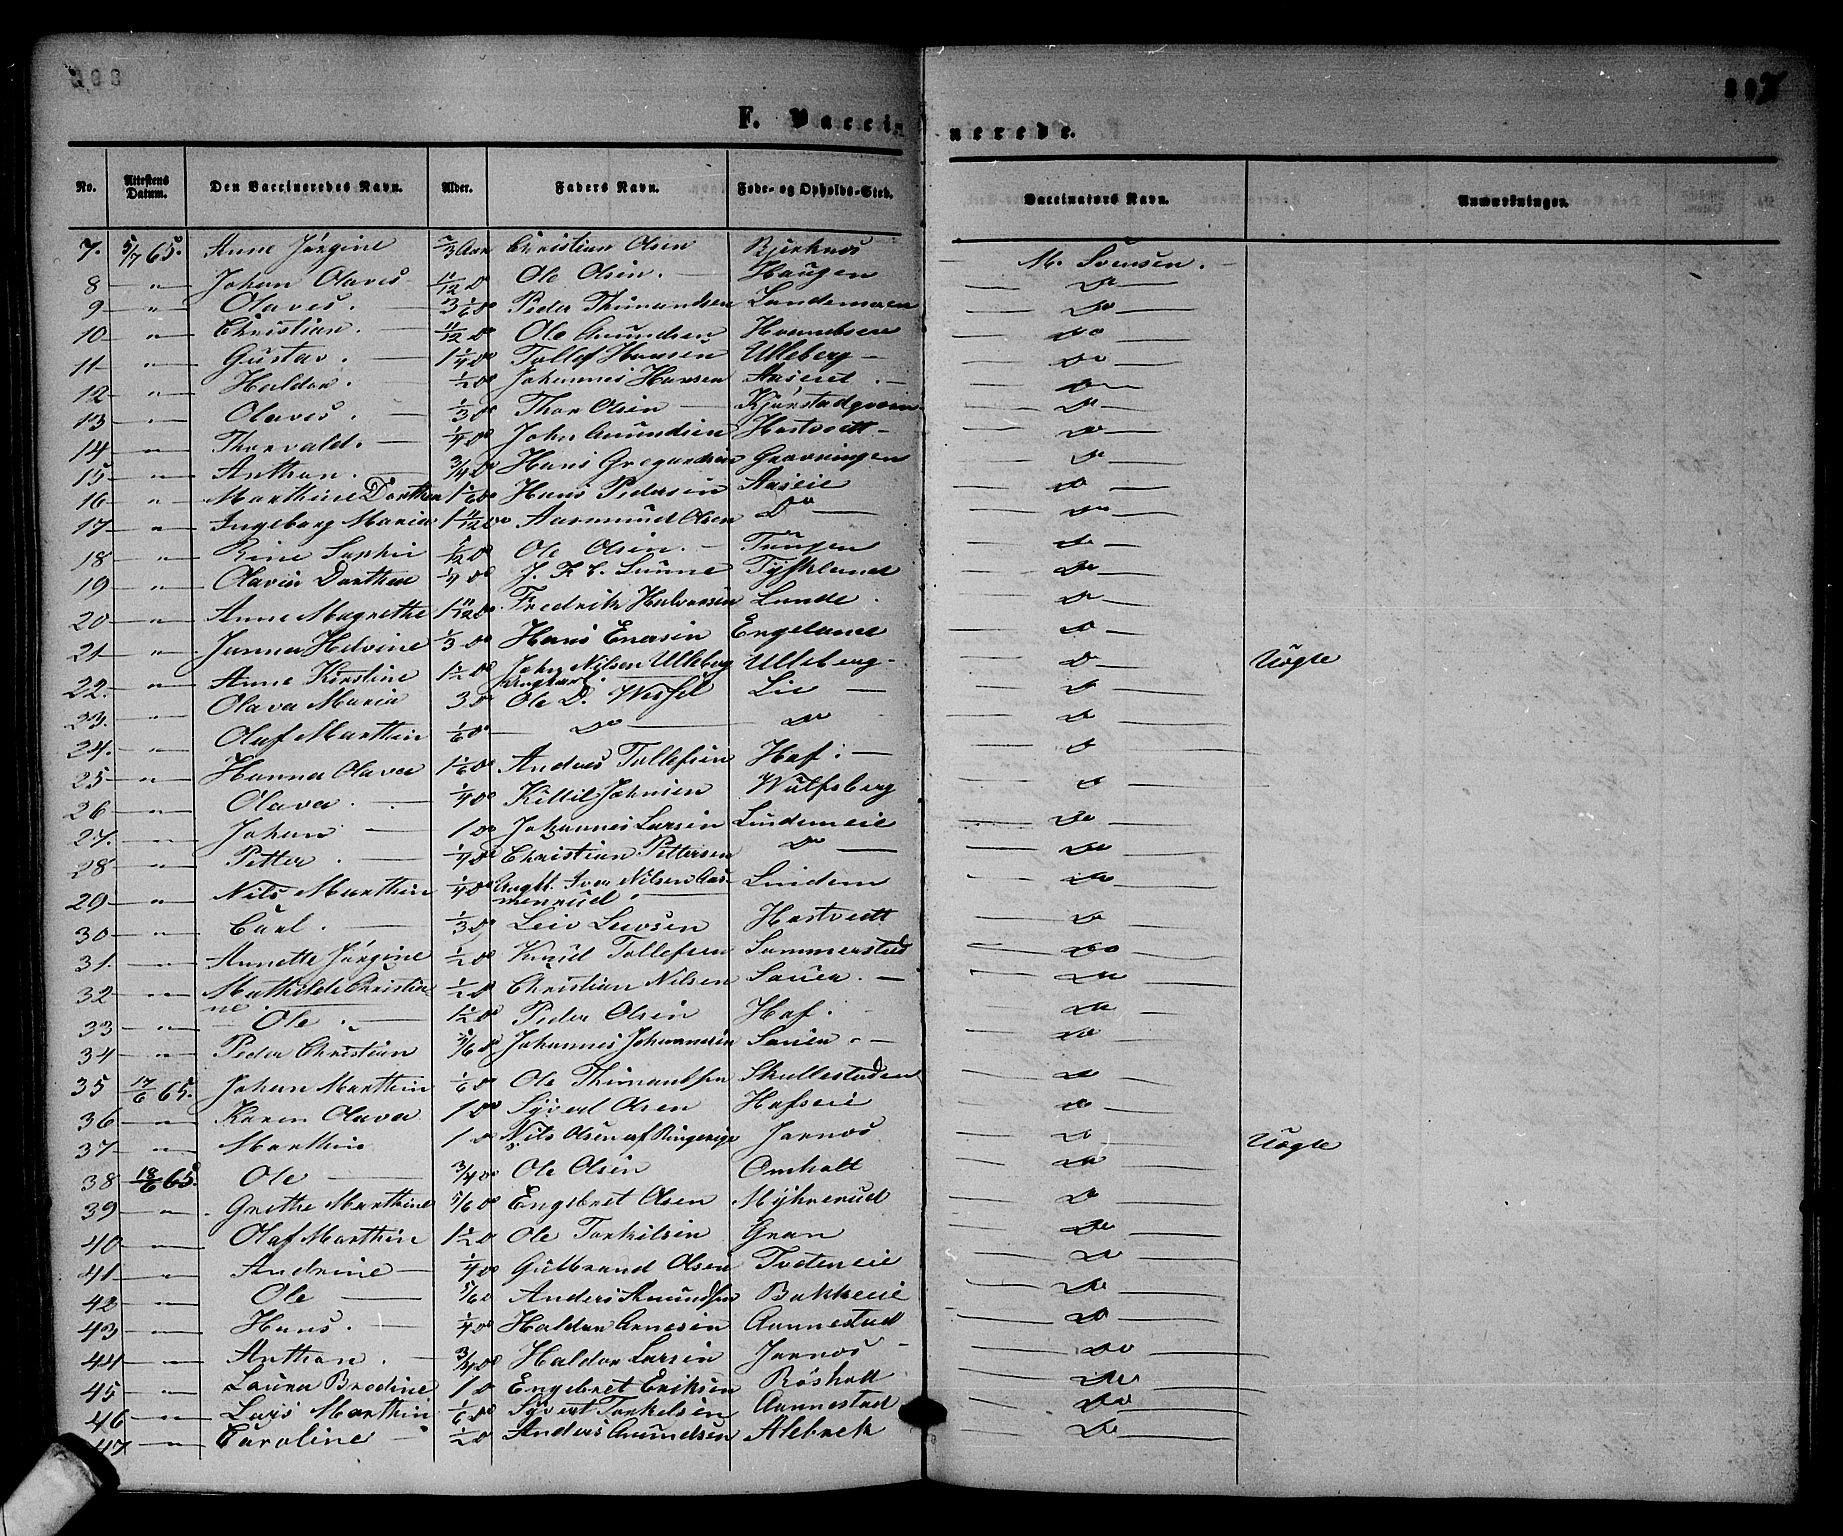 F. Vaccinerede.
No. Attestens Datum. Den Vaccineredes Navn. Alder. Faders Navn. Føde- og Opholds-Sted. Vaccinators Navn. Anmærkninger.
7. 5/7 65. Anne Jørgine 2/3 Aar Christian Olsen Bjerknes M. Svensen.
8 — " — Johan Olaves 1/12 Do Ole Olsen. Haugen Do
9 — " — Olaves. 3 1/6 Do Peder Thimandsen Lundemoen Do
10 — " — Christian. 11/12 Do Ole Amundsen Do
11 — " — Gustav. 1 1/4 Do Tollef Hansen Ulleberg Do
12 — " — Haldor. 1/2 Do Johannes Hansen Aaseret. Do
13 — " — Olaves. 1/3 Do Thor Olsen Do
14 — " — Thorvald. 1/4 Do John Amundsen Hostvedt Do
15 — " — Anthon. 3/4 Do Hans Gregardsen Gravningen Do
16 " Marthine Dorthea 1 1/6 Do Hans Pedersen Aaseie Do
17 — " — Ingeborg Maria 1 11/12 Do Aasmund Olsen Do Do
18 — " — Rine Sophie Do Ole Olsen. Do
19 — " — Olavia Dorthea 1/4 Do J. K. E. Tyskland Do
20 — " — Anne Magrethe 1 11/12 Do Fredrik Halvorsen Lunde. Do
21 — " — Janna Helvine 1/3 Do Hans Enersen Engelund Do
22. — " — Anne Kirstine 1 1/2 Do John Nilsen Ulleberg Ulleberg Do Uægte
23. — " — Olava Maria 3 Do Ole D. Wessel Lie Do
24. — " — Olaf Marthin 1/6 Do Do Do Do
25 — " — Hanna Olava 1 1/6 Do Anders Tollefsen Hof: Do
26 — " — Olava. 1/4 Do Kittil Johnsen Wulfsberg Do
27. — " — Johan 1 Do Johannes Larsen Lindemeie Do
28 — " — Petter. 1/4 Do Christian Pettersen Do Do
29 — " — Nils Marthin 1/4 Do Angtl. Iver Nilsen Aas-
menrud. Lindem Do
30 — " — Carl. 1/3 Do Leiv Hostvedt Do
31. — " — Annette Jørgine 1/2 Do Knud Tollefsen Sommerstad Do
32 — " — Mathilde Christia-
ne 1/2 Do Christian Nilsen Sauer. Do
33 — " — Ole. 1 1/2 Do Peder Olsen Hof. Do
34 — " — Peder Christian 5/6 Do Johannes Johannesen Sauer. Do
35 17/6 65. Johan Marthin 1/6 Do Ole Thimandsen Skullestaden Do
36 — " — Karen Olava 1 Do Syverd Olsen Hofseie Do
37 — " — Marthin 1 Do Nils Olsen af Ringerige Jornes Do Uægte
38 18/6 65. Ole 3/4 Do Ole Olsen Omholt Do
39 — " — Grethe Marthine 5/6 Do Engebret Olsen Myhrerud Do
40 — " — Olaf Marthin 1 1/2 Do Ole Torkilsen Gran Do
41 — " — Andrine 1/4 Do Gulbrand Olsen Tveteneie Do
42 — " — Ole 5/6 Do Anders Amundsen Bakkeeie Do
43 — " — Hans. 1/4 Do Haldor Arnesen Aannestad Do
44 — " — Anthon. 3/4 Do Haldor Larsen Jornes Do
45 — " — Laura Bredine 1 Do Engebret Eriksen Røsholt Do
46 — " — Lars Marthin 1/6 Do Syvert Torkelsen Aannestad Do
47 — " — Caroline 1/2 Do Anders Amundsen Alebrek Do